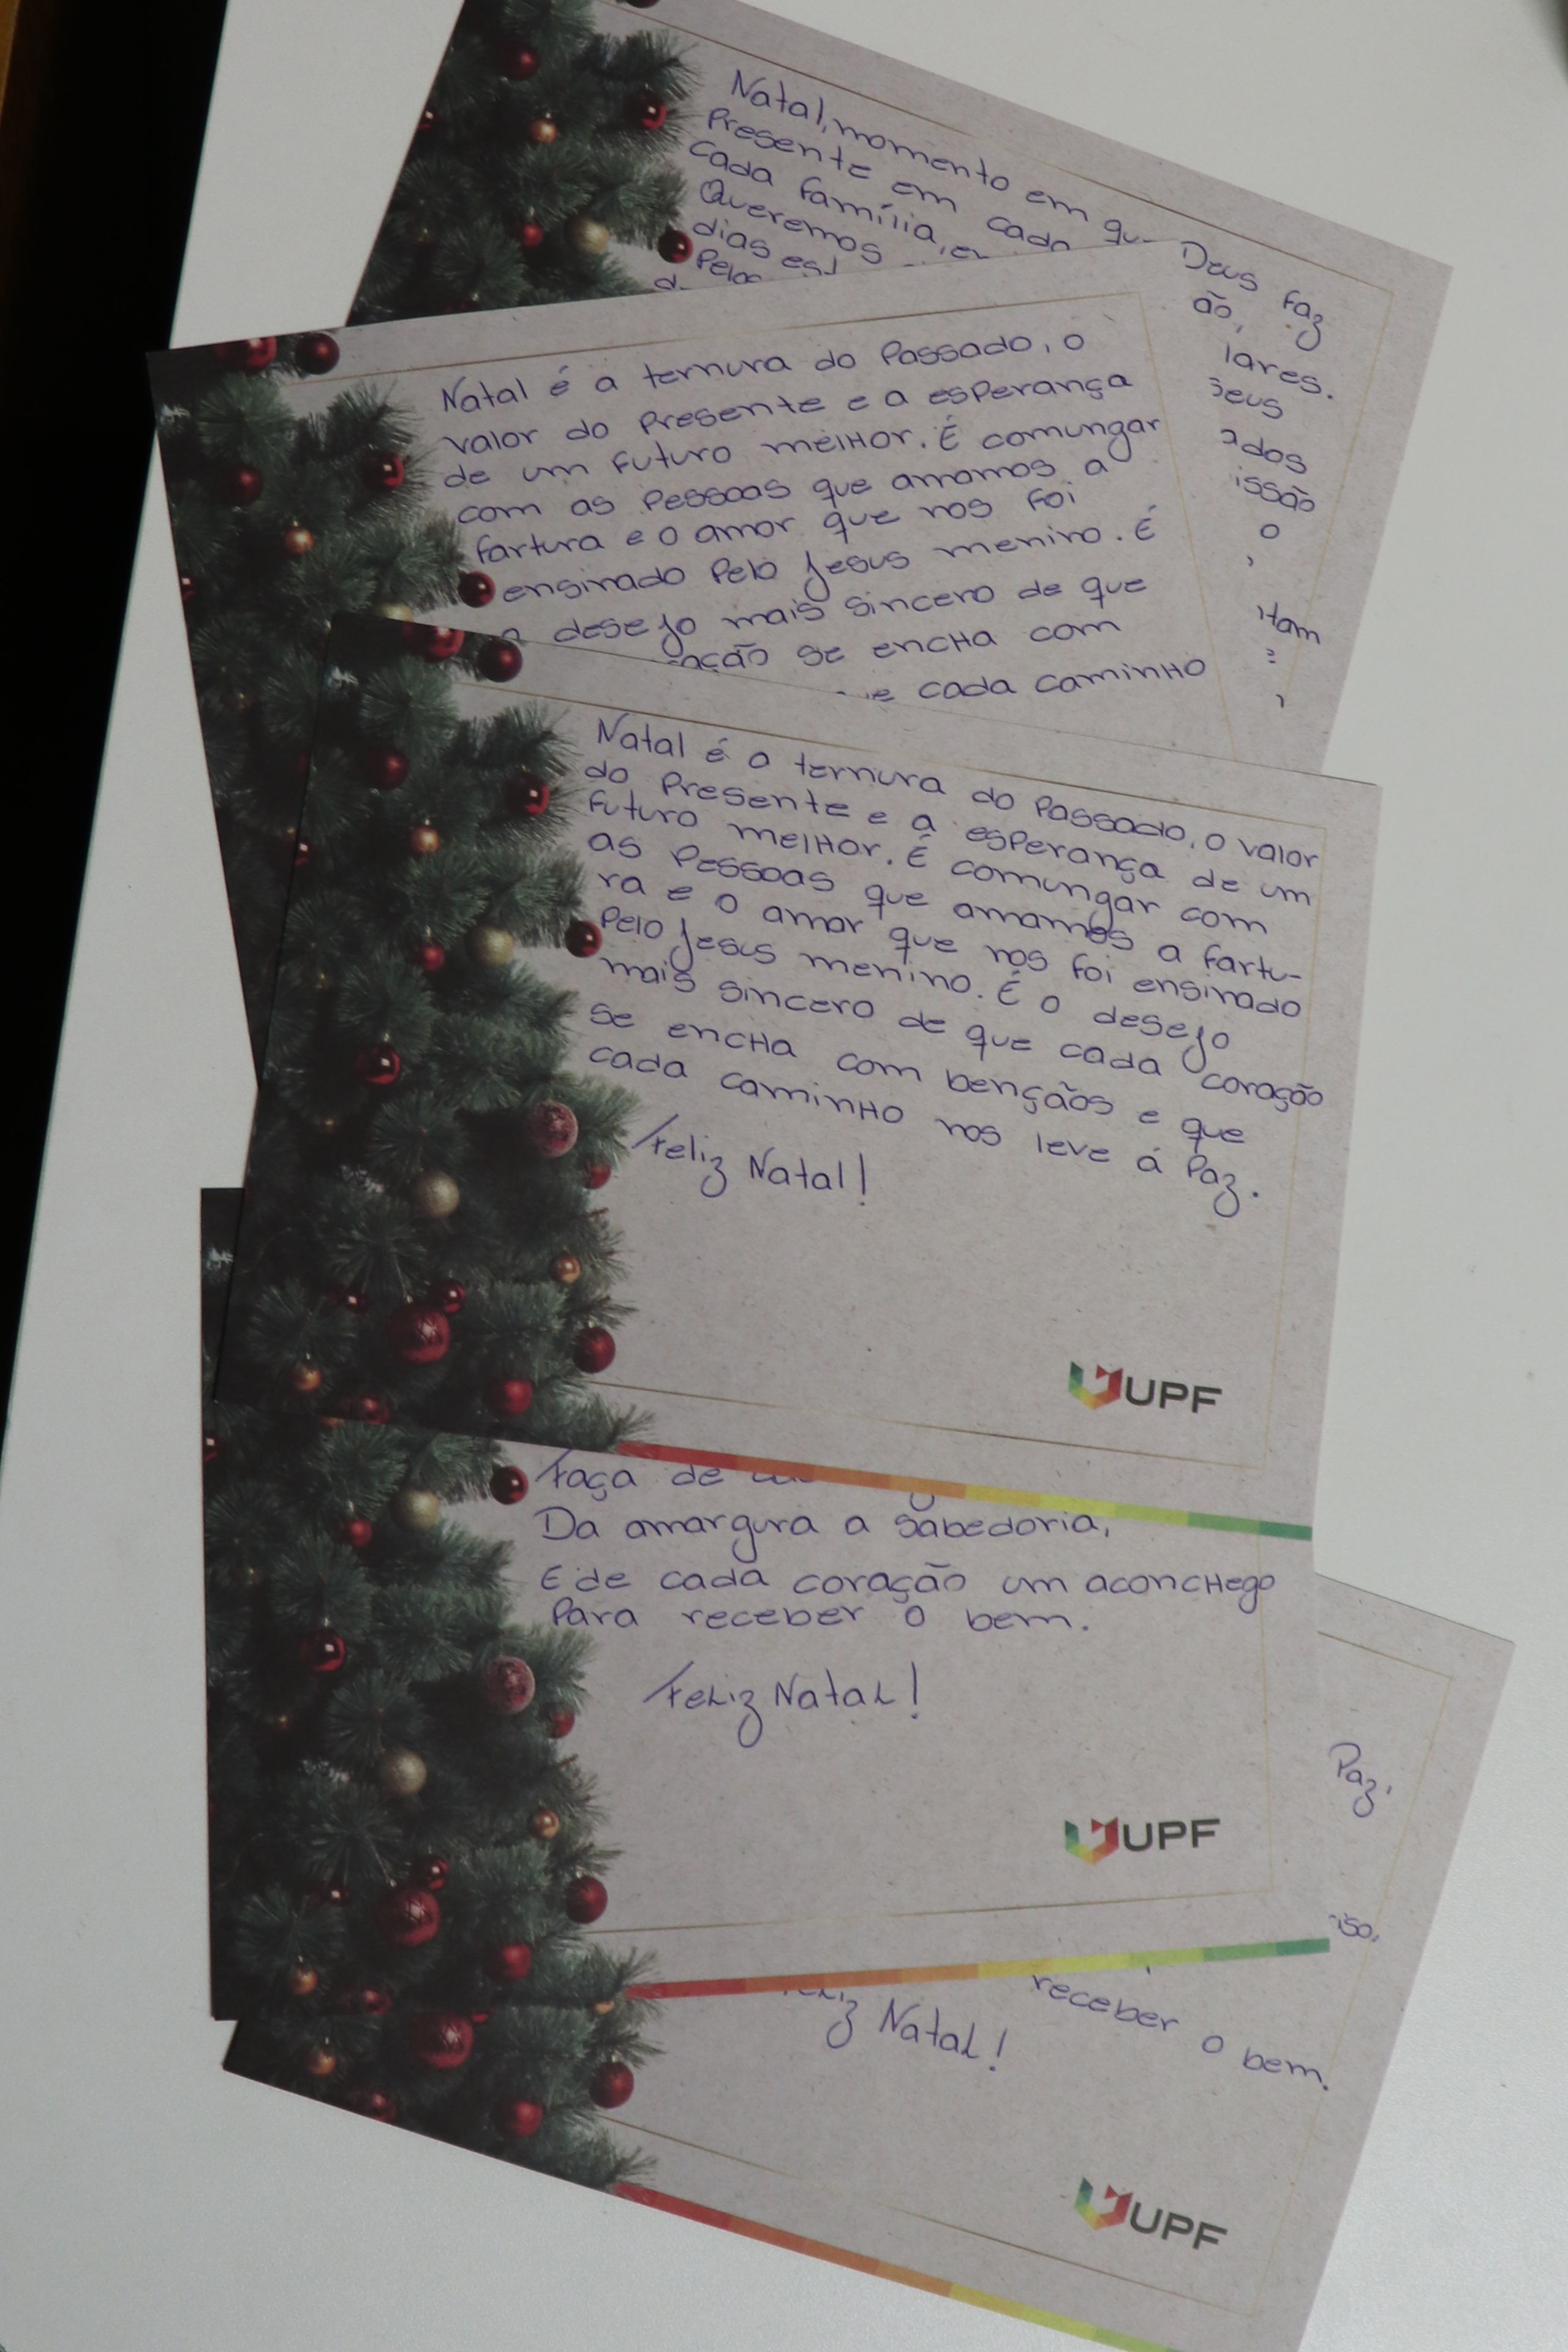 Natal, momento em Deus faz
Presente em cada ão,
cada família, lares.
Queremos
dias
Natal é a ternura do Passado, o
valor do Presente e a esperança
de um Futuro melHor. É comungar
com as Pessoas que amamos a
fartura e o amor que nos foi
ensinado Pelo Jesus menino. É
o desejo mais sincero de que
se encHa com
cada caminHo
Natal é a ternura do Passado, o valor
do Presente e a esperança de um
Futuro melHor. É comungar com
as Pessoas que amamos a fartu-
ra e o amor que nos foi ensinado
Pelo Jesus menino. É o desejo
mais sincero de que cada coração
se encHa com bençãos e que
cada caminHo nos leve á Paz.
Feliz Natal!
UPF
Faça de
Da amargura a sabedoria,
E de cada coração um aconcHego
Para receber o bem.
Feliz Natal!
UPF
Paz,
receber o bem.
Natal!
UPF